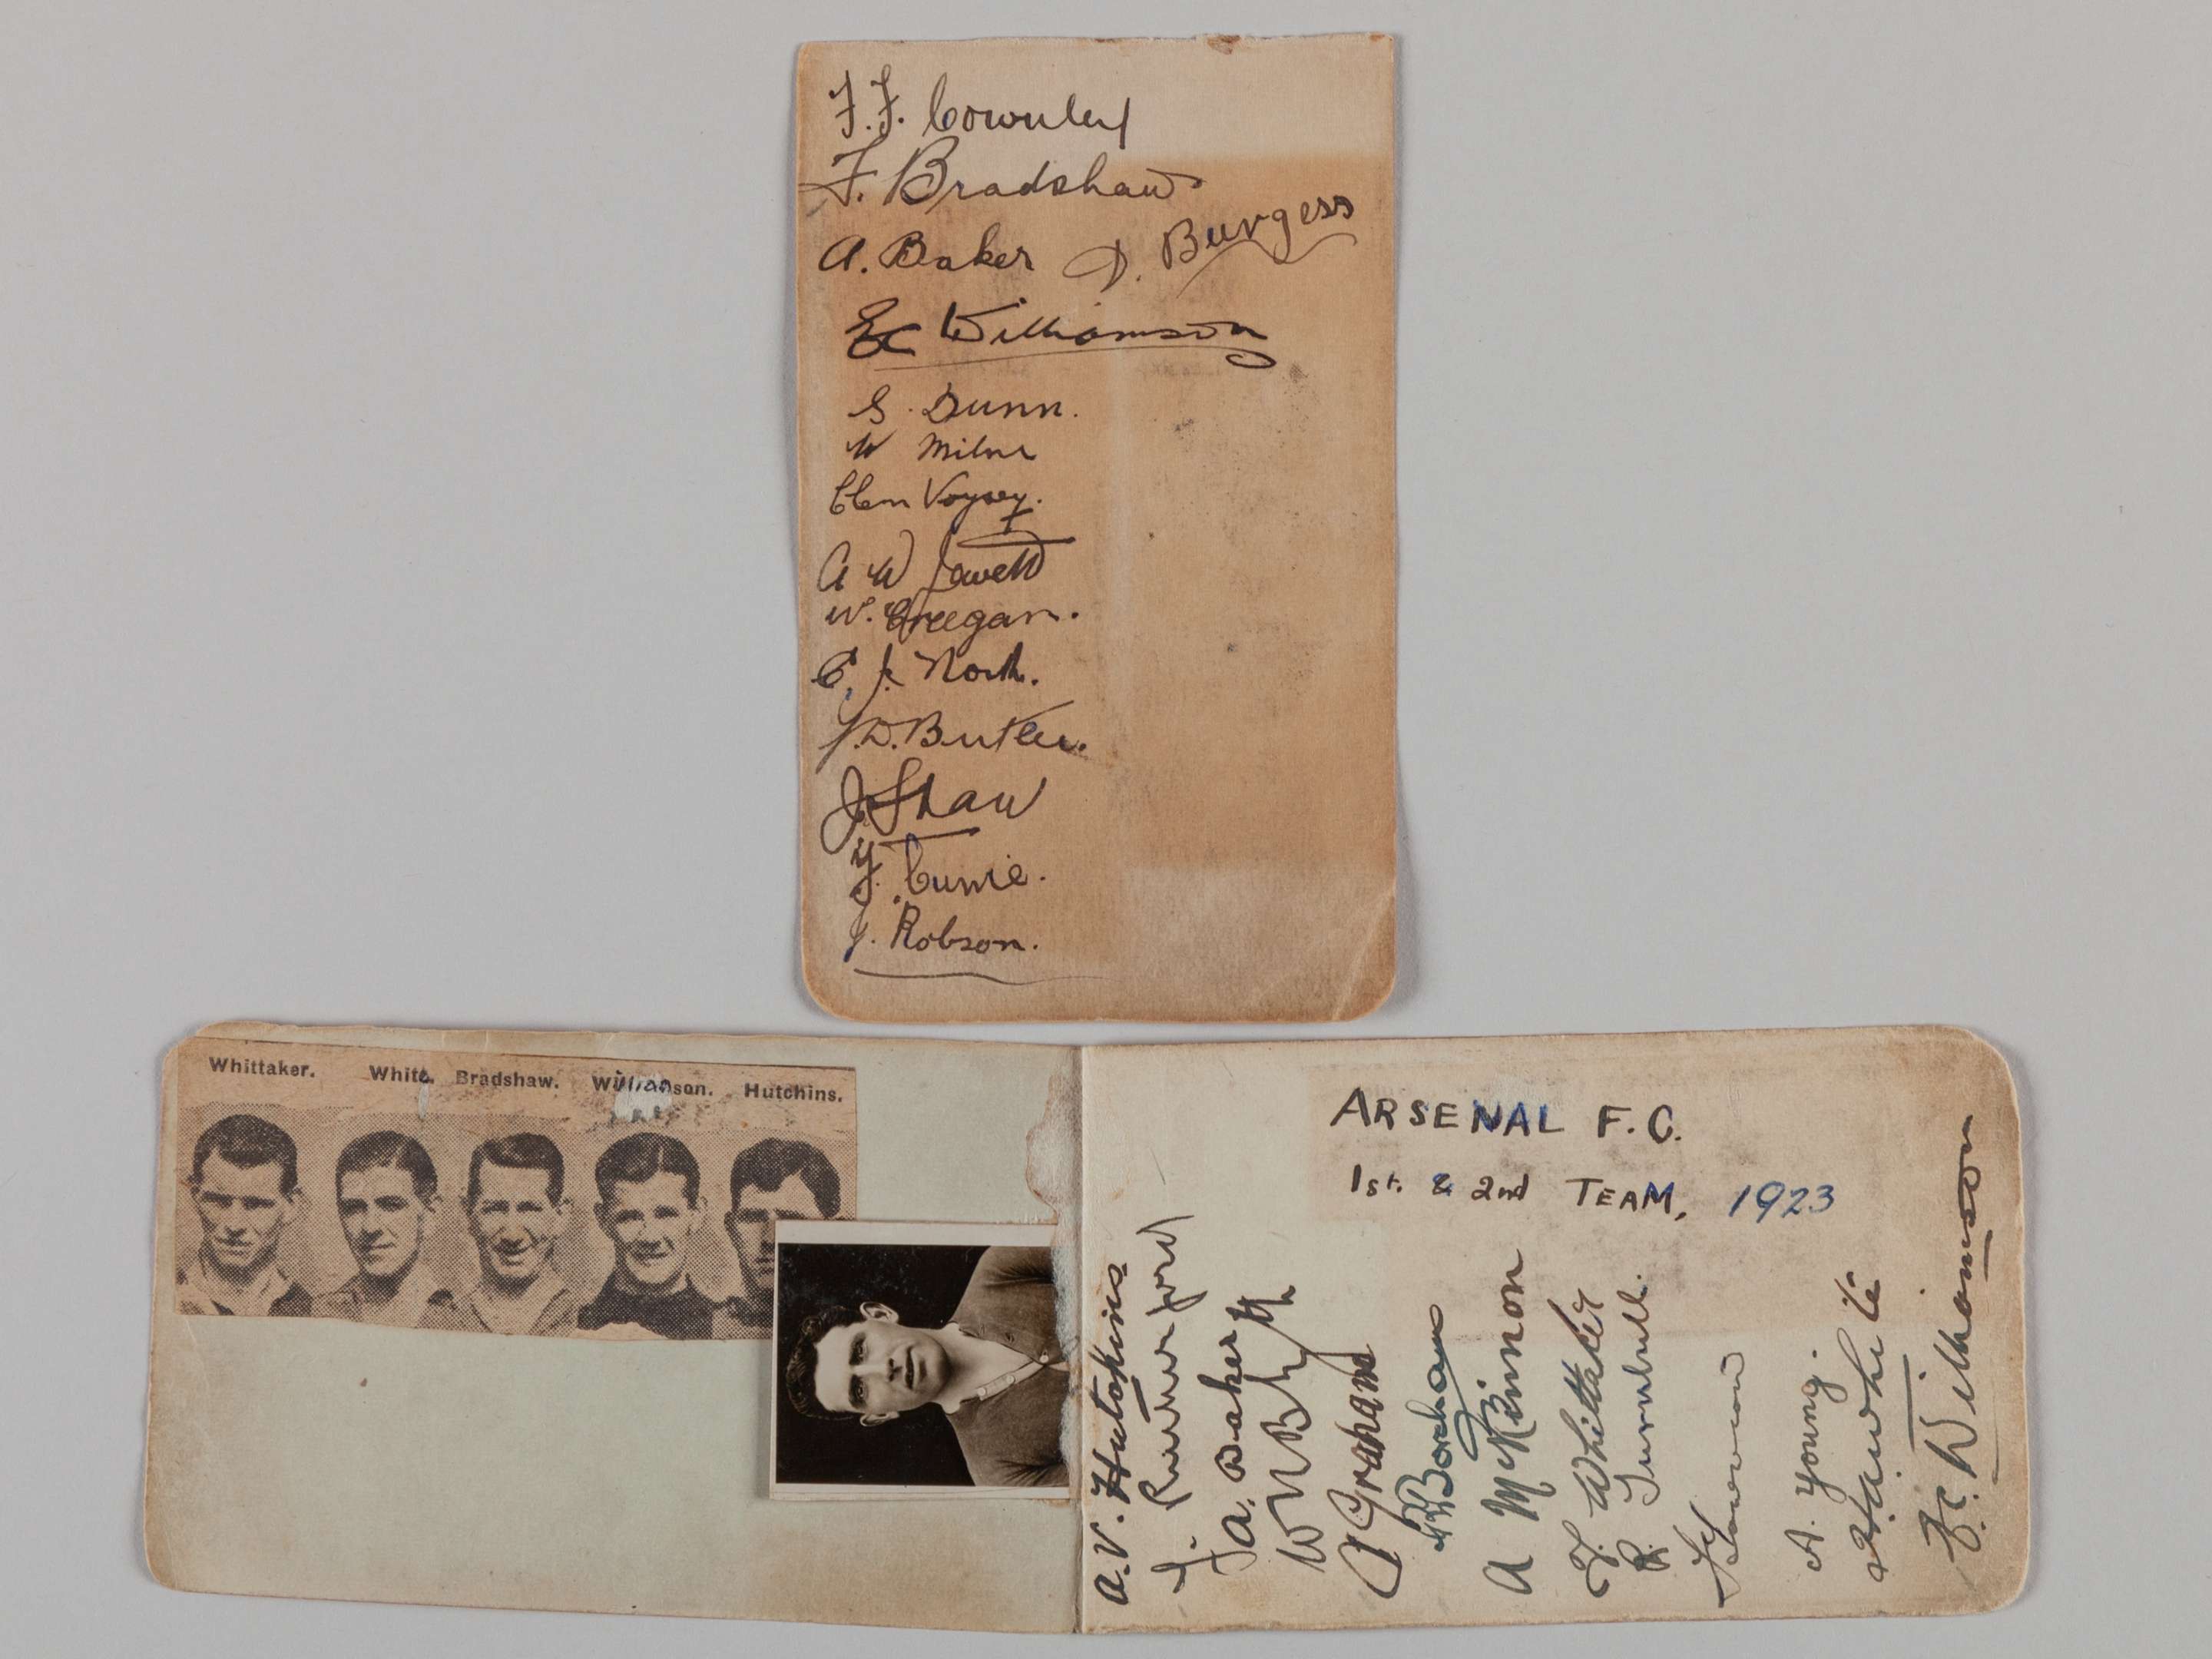 F. F. Cownley
F. Bradshaw
A. Baker D. Burgess
EC Williamson
S. Dunn.
W Milne
Clem Voysey.
A W
W. Creegan.
E. J. North.
J. D. Butler.
J. Shaw
J. Robson.
Whittaker. White. Bradshaw. Williamson. Hutchins.
ARSENAL F.C.
1st. & 2nd TEAM, 1923
A.V. Hutchins
J. Rutherford
Ja. Baker
W M Blyth
A Graham
Boreham
A McKinnon
T. Whittaker
R. Turnbull.
A. Young.
H. A. White
E. C. Williamson